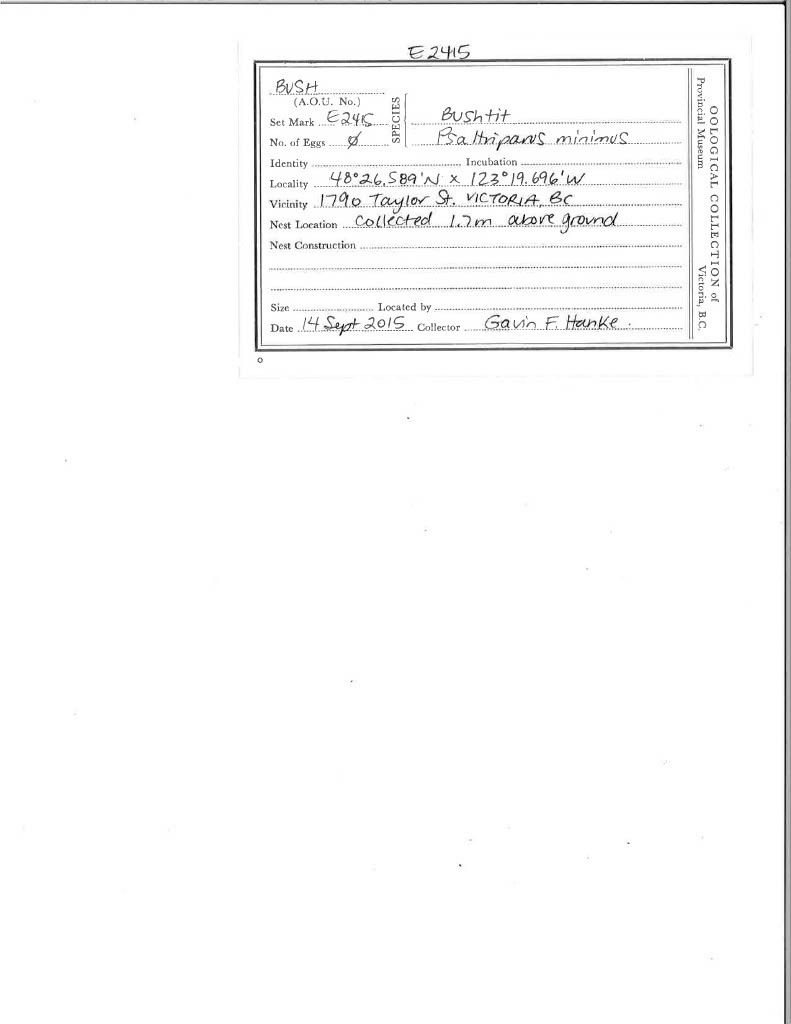 E2415
BUSH
(A.O.U. No.)
Set Mark E2415
No. of Eggs ∅
SPECIES
Bushtit
Psaltriparus minimus
Identity Incubation
Locality 48°26.589'N x 123°19.696'W
Vicinity 1790 Taylor St. VICTORIA, BC
Nest Location Collected 1.7m above ground
Nest Construction
Size Located by
Date 14 Sept 2015 Collector Gavin F. Hanke.
OOLOGICAL COLLECTION of
Provincial Museum Victoria, B.C.
o